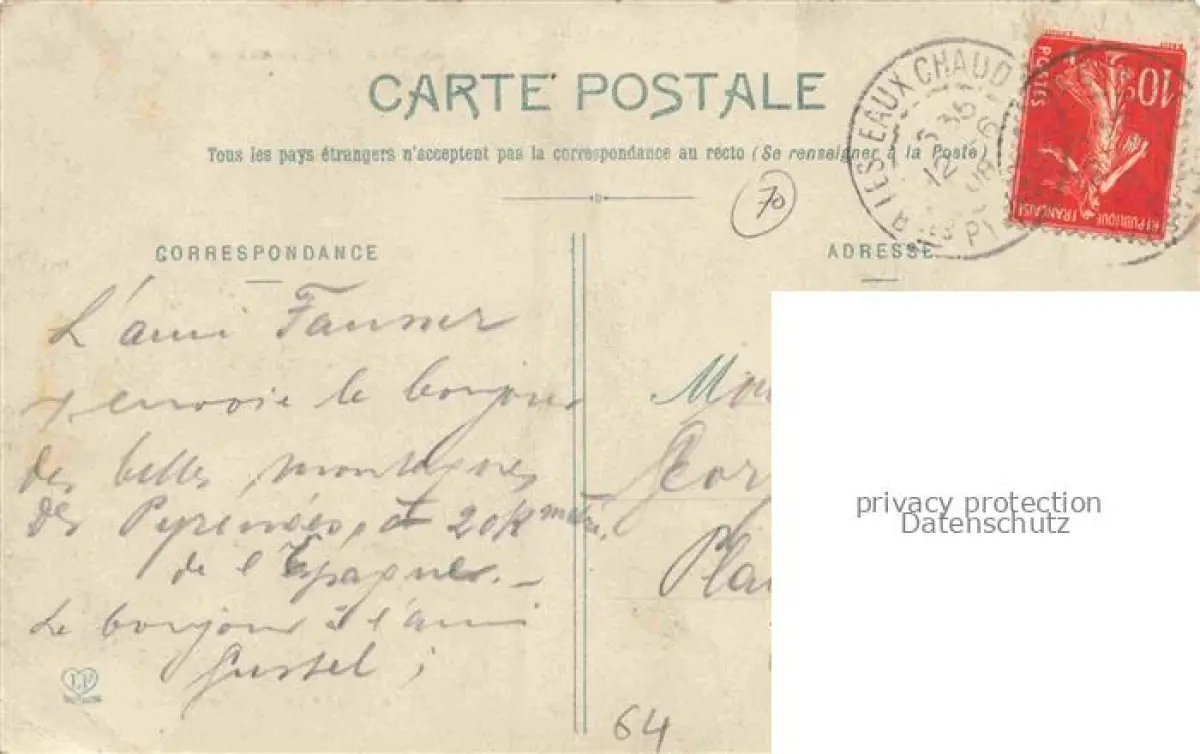 CARTE POSTALE
Tous les pays étrangers n'acceptent pas la correspondance au recto (Se renseigner à la Poste)
70
LES EAUX CHAUD
12 -6
08
10c
POSTES
REPUBLIQUE FRANÇAISE
CORRESPONDANCE
ADRESSE
L'ami
envoie le bonjour
des belles montagnes
des Pyrénées, à 20 K mètres
de l'Espagne. —
Le bonjour à l'ami
Gustel ;
Mon
Geor
Pla
privacy protection
Datenschutz
64